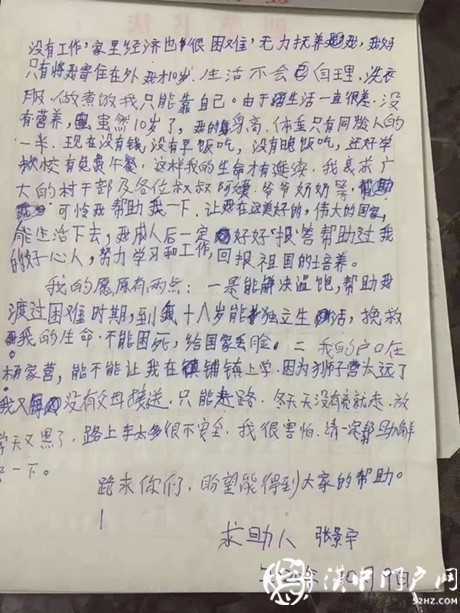 没有工作，家里经济也很困难，无力抚养我，我妈
只有将我寄住在外 我才10岁.生活不会自理.洗衣
服.做煮饭我只能靠自己。由于生活一直很差.没
有营养，虽然10岁了，我的身高.体重只有同龄人的
一半.现在没有钱，没有早饭吃，没有晚饭吃，还好学
校有免费午餐，这样我的生命才有延续.我恳求广
大的村干部及各位叔叔阿姨.爷爷奶奶等
可怜我帮助我一下.让我在这美好的，伟大的国家
能生活下去，我成人后一定好好报答帮助过我
的好心人，努力学习和工作，回报祖国的培养。
我的愿原有两点：一是能解决温饱，帮助我
渡过困难时期，到我十八岁能独立生活，挽救
我的生命.不能困死，给国家丢脸。二我的户口在
杨家营，能不能让我在镇铺镇上学.因为狮子营太远了
我又没有父母接送.只能走路.冬天天没有亮就走.放
学天又黑了.路上车太多很不安全.我很害怕.请一定帮助解
一下。
跪求你们，盼望能得到大家的帮助。
求助人 张景宇
汉中门户网
92HZ.COM